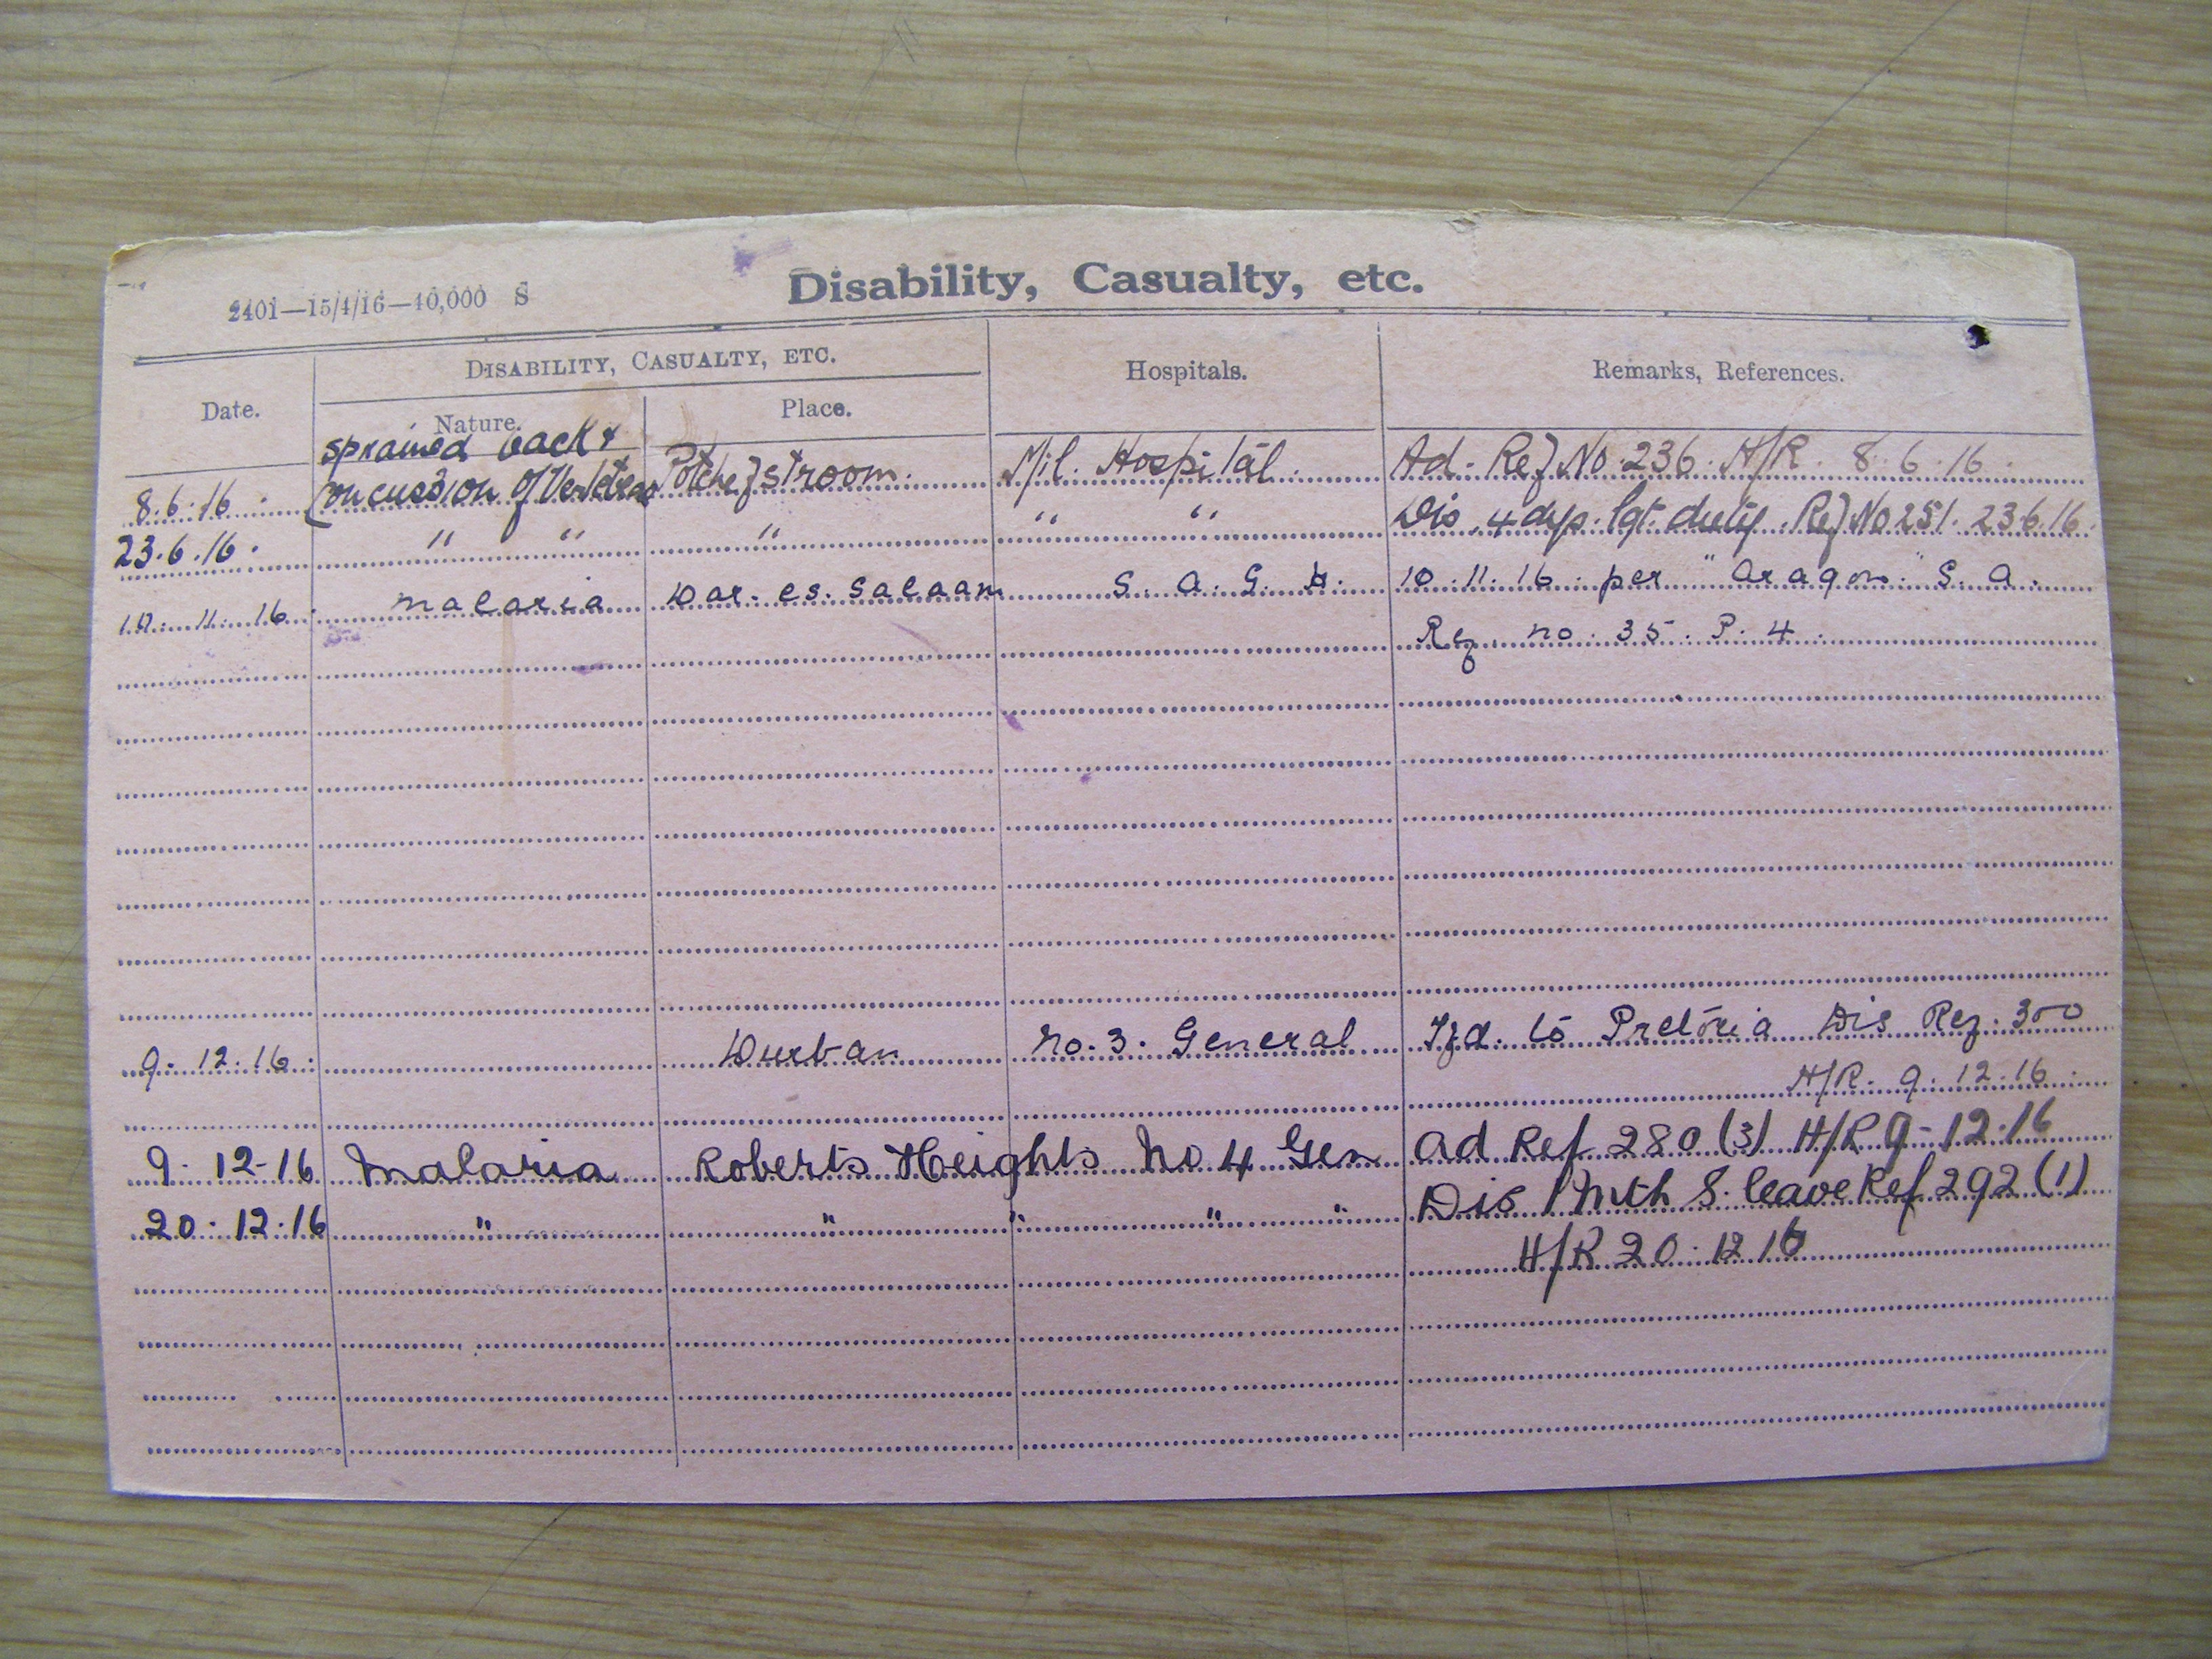 2401—15/4/16—40,000 S
Disability, Casualty, etc.
Date. DISABILITY, CASUALTY, ETC. Hospitals. Remarks, References.
Nature. Place.
sprained back &
8.6.16. Concussion of Vertebrae Potchefstroom. Mil. Hospital. Ad. Ref No. 236. H/R. 8.6.16.
23.6.16. " " " " " Dis. 4 dys. lgt. duty. Ref No 251. 23.6.16.
10.11.16. malaria Dar. es. Salaam S. A. G. H. 10.11.16. per "Aragon." S. A.
Ref. no. 35. P. 4.
9.12.16. Durban no. 3. General Tfd. to Pretoria Dis Ref. 300
H/R. 9.12.16.
9-12-16 Malaria Roberts Heights No 4 Gen Ad Ref 280 (3) H/R 9-12-16
20.12.16 " " " " " Dis 1 Mth S. leave Ref 292 (1)
H/R 20.12.16